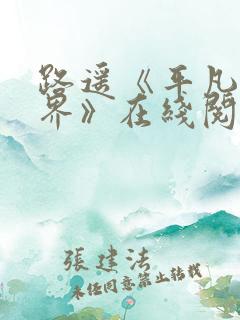 路遥《平凡
界》在线阅
張建法
未经同意禁止转载